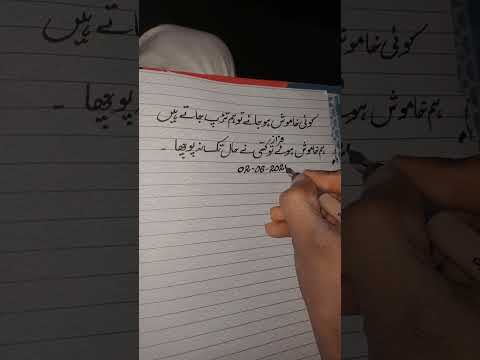 کوئی خاموش ہو جائے تو ہم تڑپ جاتے ہیں
ہم خاموش ہوئے فراز تو کسی نے حال تک نہ پوچھا ۔
02-06-2021